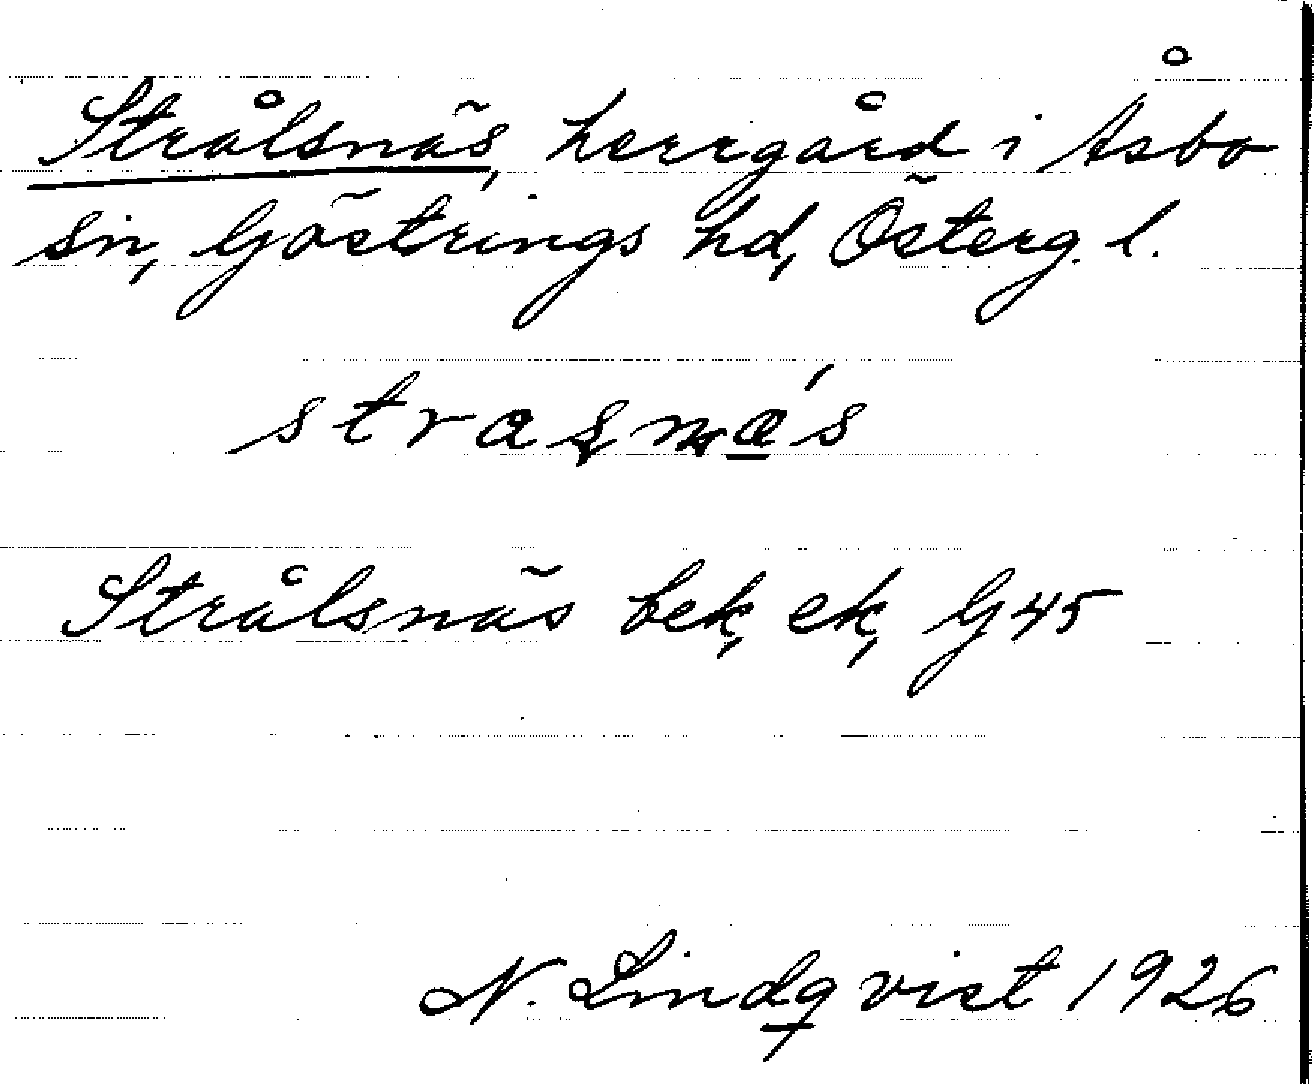 Strålsnäs, herrgård i Åsbo
sn, Göstrings hd, Österg. l.
Strålsnäs bek, ek, G 45
N. Lindqvist 1926